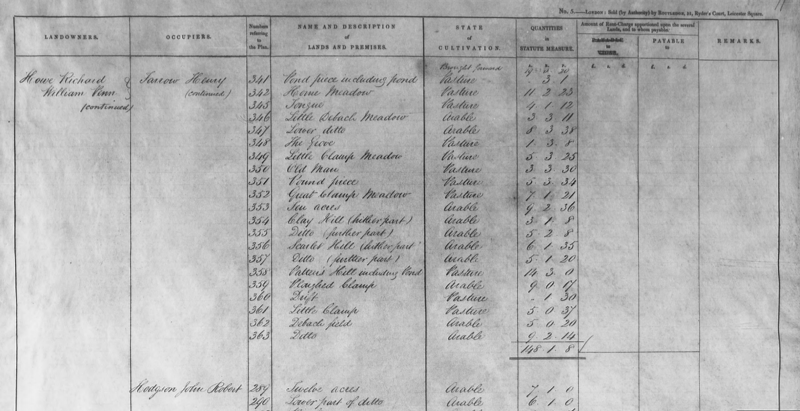 No. 3.—LONDON: Sold (by Authority) by
11
LANDOWNERS. OCCUPIERS. Numbers referring to the Plan. NAME AND DESCRIPTION OF LANDS AND PREMISES. STATE OF CULTIVATION. QUANTITIES IN STATUTE MEASURE. Amount of Rent-Charge apportioned upon the several Lands, and to whom payable. PAYABLE to REMARKS.
Brought forward
Howe Richard Farrow Henry 341 Pond piece including pond Pasture - 3 1
William Venn (continued) 342 Home Meadow Pasture 11 2 23
(continued) 345 Tongue Pasture 4 1 12
346 Little Debach Meadow Arable 3 3 11
347 Lower ditto Arable 8 3 38
348 The Grove Pasture 1 3 8
349 Little Clamp Meadow Pasture 5 3 25
350 Old Man Pasture 3 3 30
351 Pound piece Pasture 5 3 34
352 Great Clamp Meadow Pasture 7 1 21
353 Ten acres Arable 9 2 36
354 Clay Hill (hither part) Arable 3 1 8
355 Ditto (further part) Arable 5 2 8
356 Scarlet Hill (hither part) Arable 6 1 35
357 Ditto (further part) Arable 5 1 20
358 Pattens Hill including Pond Pasture 14 3 0
359 Ploughed Clamp Arable 9 0 17
360 Drift Pasture - 1 30
361 Little Clamp Pasture 5 0 37
362 Debach field Arable 5 0 20
363 Ditto Arable 9 2 14
148 1 8
Hodgson John Robert 289 Twelve acres Arable 7 1 0
290 Lower part of ditto Arable 6 1 0